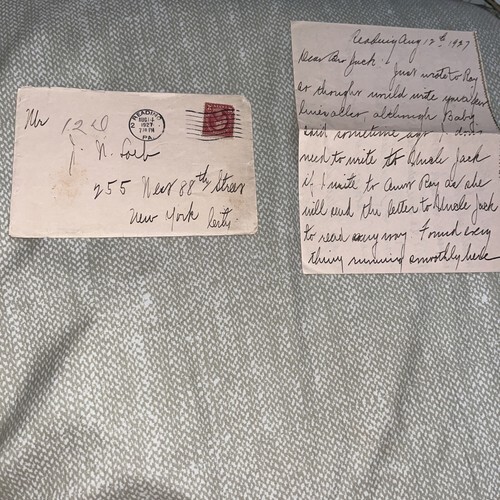 Mr
12G
J. N. Loeb
255 West 88th Street
New York City
READING
AUG 14
1927
PA.
Reading Aug 12th 1927
Dear Bro Jack.
Just wrote to Ray
so thought would write you a few
lines also, although Baby
said sometime ago I don't
need to write to Uncle Jack
if I write to Aunt Ray as she
will send the letter to Uncle Jack
to read any way Found every
thing running smoothly here